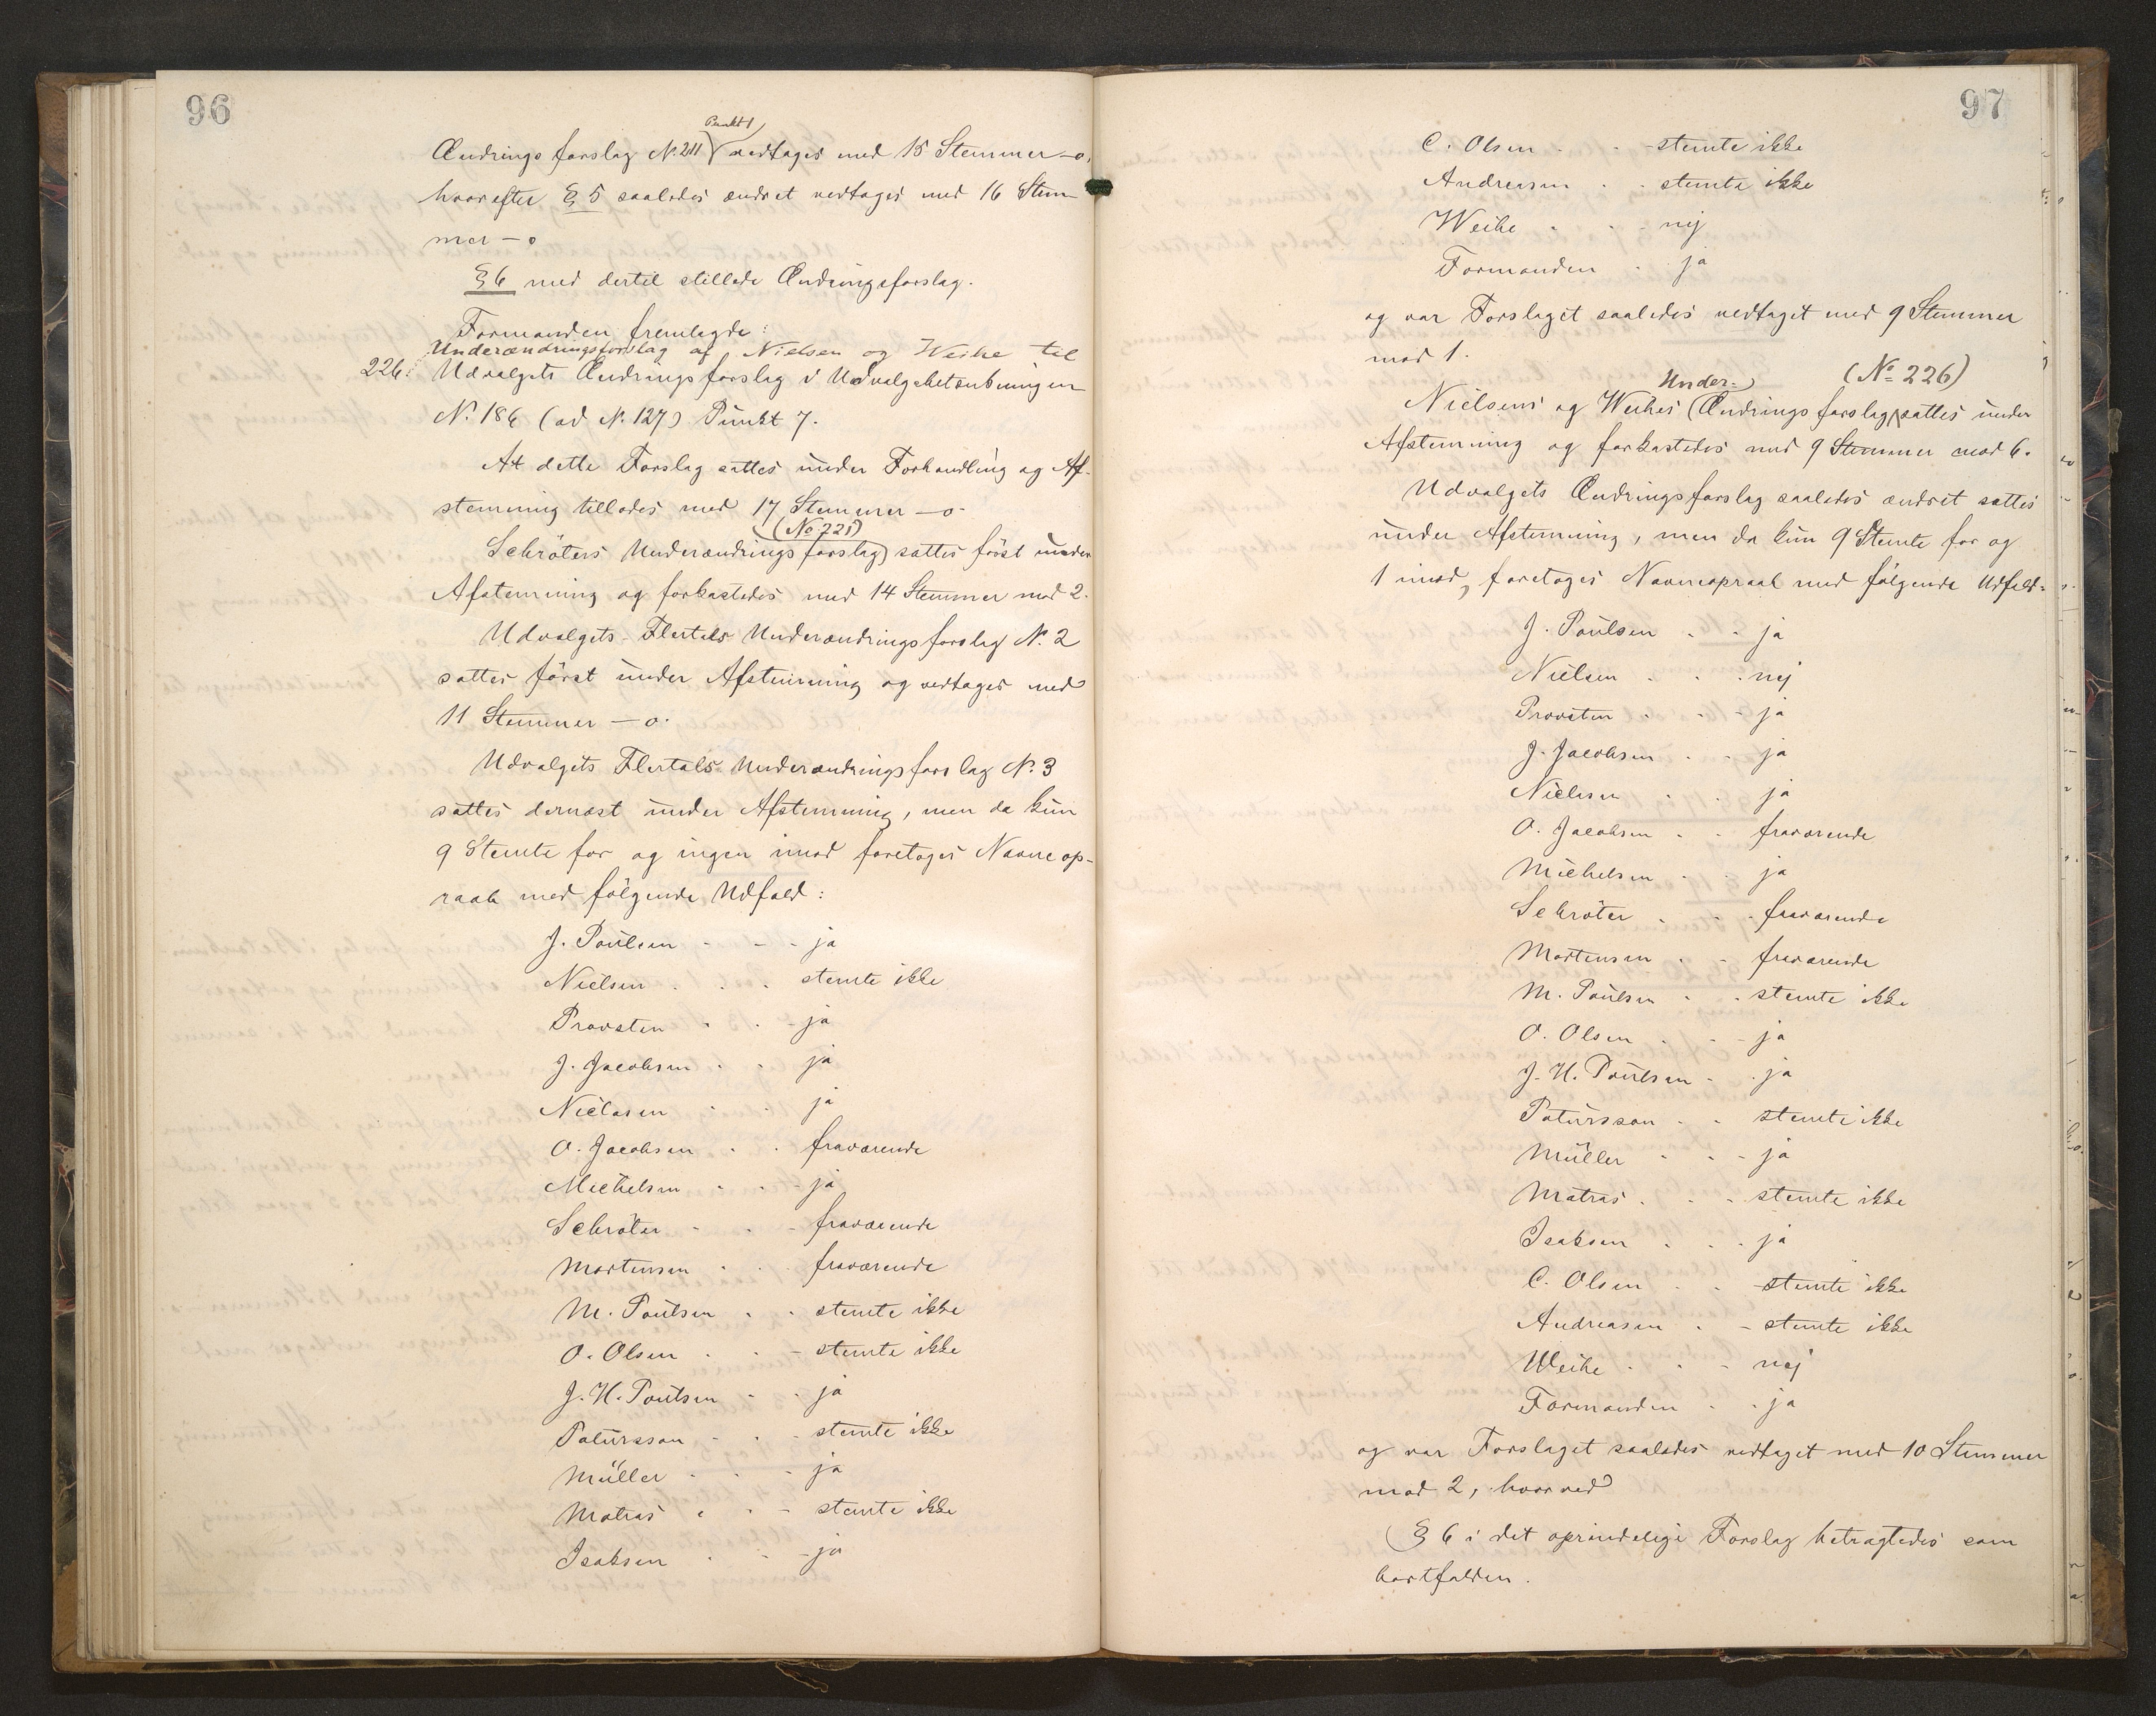 96
Punkt 1
Ændringsforslag No. 211 vedtoges med 15 Stemmer - o.
hvorefter § 5 saaledes ændret vedtoges med 16 Stem-
mer - o
§ 6 med dertil stillede Ændringsforslag.
Formanden fremlagde:
Underændringsforslag af Nielsen og Weihe til
226. Udvalgets Ændringsforslag i Udvalgsbetænkningen
No. 186 (ad No. 127) Punkt 7.
At dette Forslag sattes under Forhandling og Af-
stemning tillodes med 17 Stemmer - o
(No 221)
Schröters Underændringsforslag sattes först under
Afstemning og forkastedes med 14 Stemmer mod 2.
Udvalgets Flertals Underændringsforslag No. 2
sattes först under Afstemning og vedtoges med
11 Stemmer - o.
Udvalgets Flertals Underændringsforslag No. 3
sattes dernæst under Afstemning, men da kun
9 Stemte for og ingen imod foretoges Navneop-
raab med fölgende Udfald:
J. Poulsen - - - ja
Nielsen . . . stemte ikke
Provsten - . - ja
J. Jacobsen - - ja
Niclasen - . ja
O. Jacobsen - . fraværende
Michelsen - - - ja
Schröter - - - fraværende
Mortensen - . fraværende
M. Poulsen . . stemte ikke
O. Olsen . - stemte ikke
J. H. Poulsen - . ja
Patursson - . . stemte ikke
Müller - . - ja
Matras . . - stemte ikke
Isaksen . . - ja
97
C. Olsen - - stemte ikke
Andreasen . . stemte ikke
Weihe . . - nej
Formanden . ja
og var Forslaget saaledes vedtaget med 9 Stemmer
mod 1.
Under- (No 226)
Nielsens og Weihes Ændringsforslag sattes under
Afstemning og forkastedes med 9 Stemmer mod 6.
Udvalgets Ændringsforslag saaledes ændret sattes
under Afstemning, men da kun 9 Stemte for og
1 imod, foretoges Navneopraab med fölgende Udfald:
J. Poulsen . - ja
Nielsen . . . nej
Provsten . - - ja
J. Jacobsen . - ja
Niclasen . . ja
O. Jacobsen . . fraværende
Michelsen . . ja
Schröter . - . fraværende
Mortensen . - fraværende
M. Poulsen . . stemte ikke
O. Olsen . - - ja
J. H. Poulsen - . ja
Patursson . . stemte ikke
Müller . - - ja
Matras . . - stemte ikke
Isaksen . . . ja
C. Olsen . . stemte ikke
Andreasen . - stemte ikke
Weihe . . - nej
Formanden . . ja
og var Forslaget saaledes vedtaget med 10 Stemmer
mod 2, hvorved
§ 6 i det oprindelige Forslag betragtedes som
bortfalden.